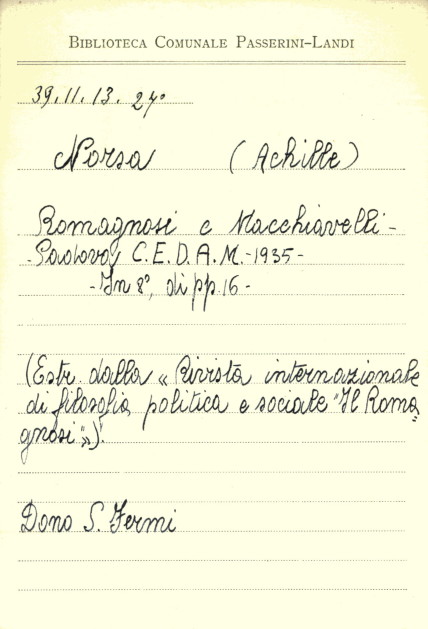 BIBLIOTECA COMUNALE PASSERINI-LANDI
39.11.13.24°
Norsa (Achille)
Romagnosi e Macchiavelli -
- Padova, C.E.D.A.M. - 1935 -
- In 8°, di pp. 16 -
(Estr. dalla « Rivista internazionale
di filosofia politica e sociale "Il Roma=
gnosi"»).
Dono S. Fermi